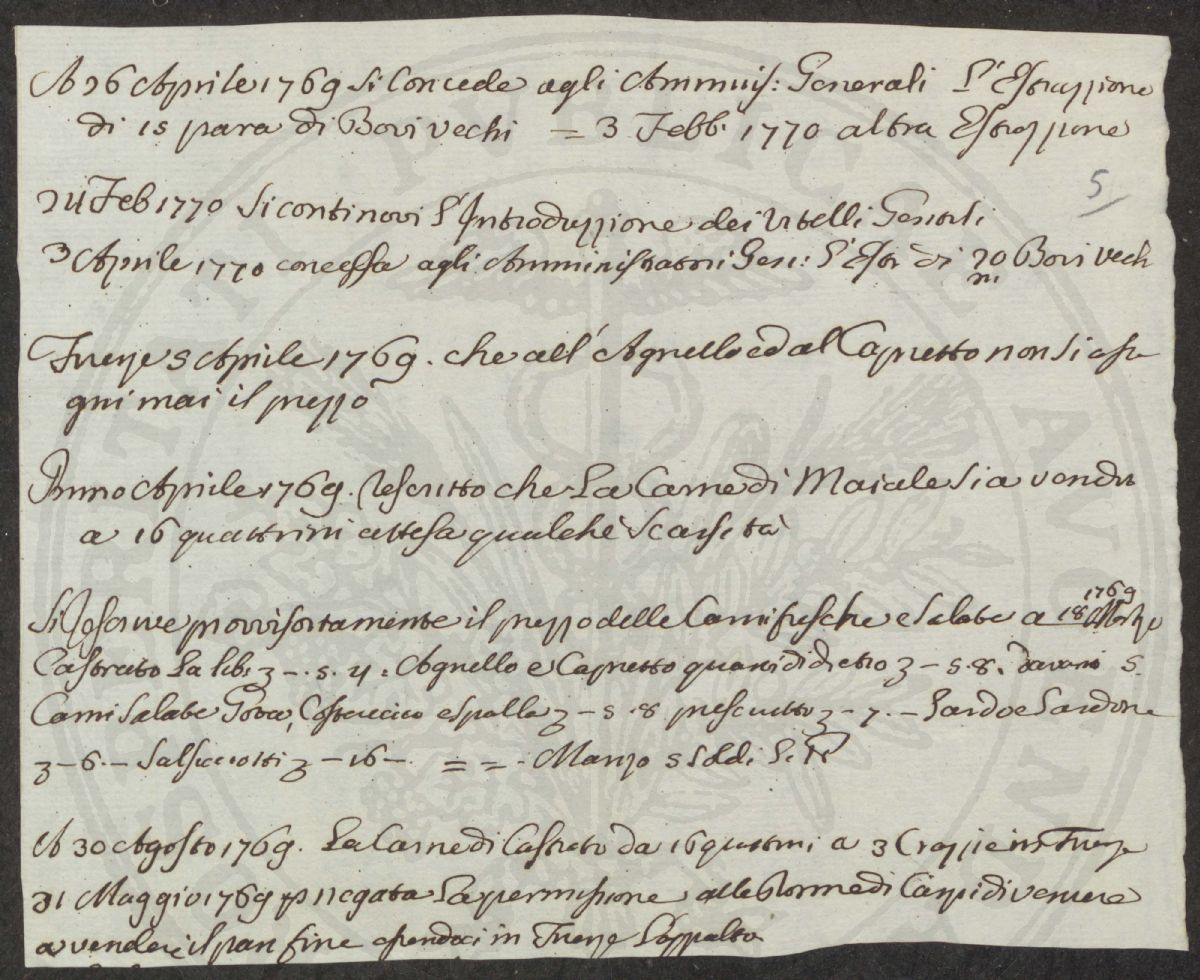 A 26 Aprile 1769 si Concede agli Amminis: Generali L'Estrazzione
di 15 para di Bovi vechi = 3 Febb: 1770 altra Estrazzione
5
24 Feb 1770 si continovi l'Introduzzione dei Vitelli
3 Aprile 1770 concessa agli Amministratori Gen: l'Estr di 20 Bovi vech
ni
Firenze 5 Aprile 1769. che all'Agnello ed al Capretto non si asse
gni mai il prezzo
Primo Aprile 1769. Rescritto che La Carne di Maiale sia vendu
a 16 quattrini attesa qualche scarsità
Si Rescrive provvisoriamente il prezzo delle Carni fresche e salate a 18 Marzo
1769
Castrato La lib: 3 -. 5. 4: Agnello e Capretto quarti di dietro 3 - 5. 8. davanti 5
Carni salate Gota, Costereccio e spalla 3 - 5. 8 presciutto 3 - 7. - Lardo e Lardone
3 - 6. - Salsicciotti 3 - 16 -. = = - Manzo 5 soldi
A 30 Agosto 1769. La Carne di Castrato da 16 quattrini a 3 Crazzie in Firenze
31 Maggio 1769 negata La permissione alle Donne di Carpi di venire
a vendere il pan fine essendoci in Firenze L'appalto